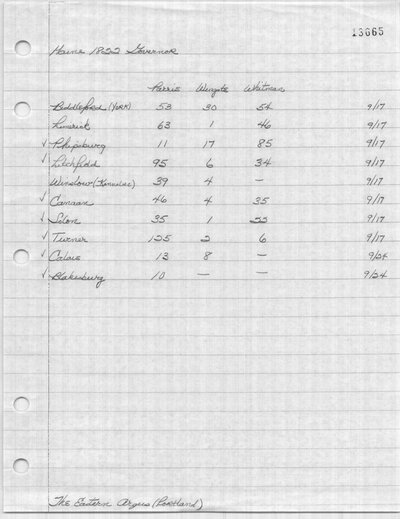 13665
Maine 1822 Governor
Parris Wingate Whitman
Biddleford (York) 53 30 54 9/17
Limerick 63 1 46 9/17
✓ Phipsburg 11 17 85 9/17
✓ Litchfield 95 6 34 9/17
Winslow (Kennebec) 39 4 — 9/17
✓ Canaan 46 4 35 9/17
✓ Solon 35 1 9/17
✓ Turner 125 2 6 9/17
✓ Calais 13 8 — 9/24
✓ Blakesburg 10 — — 9/24
The Eastern Argus (Portland)